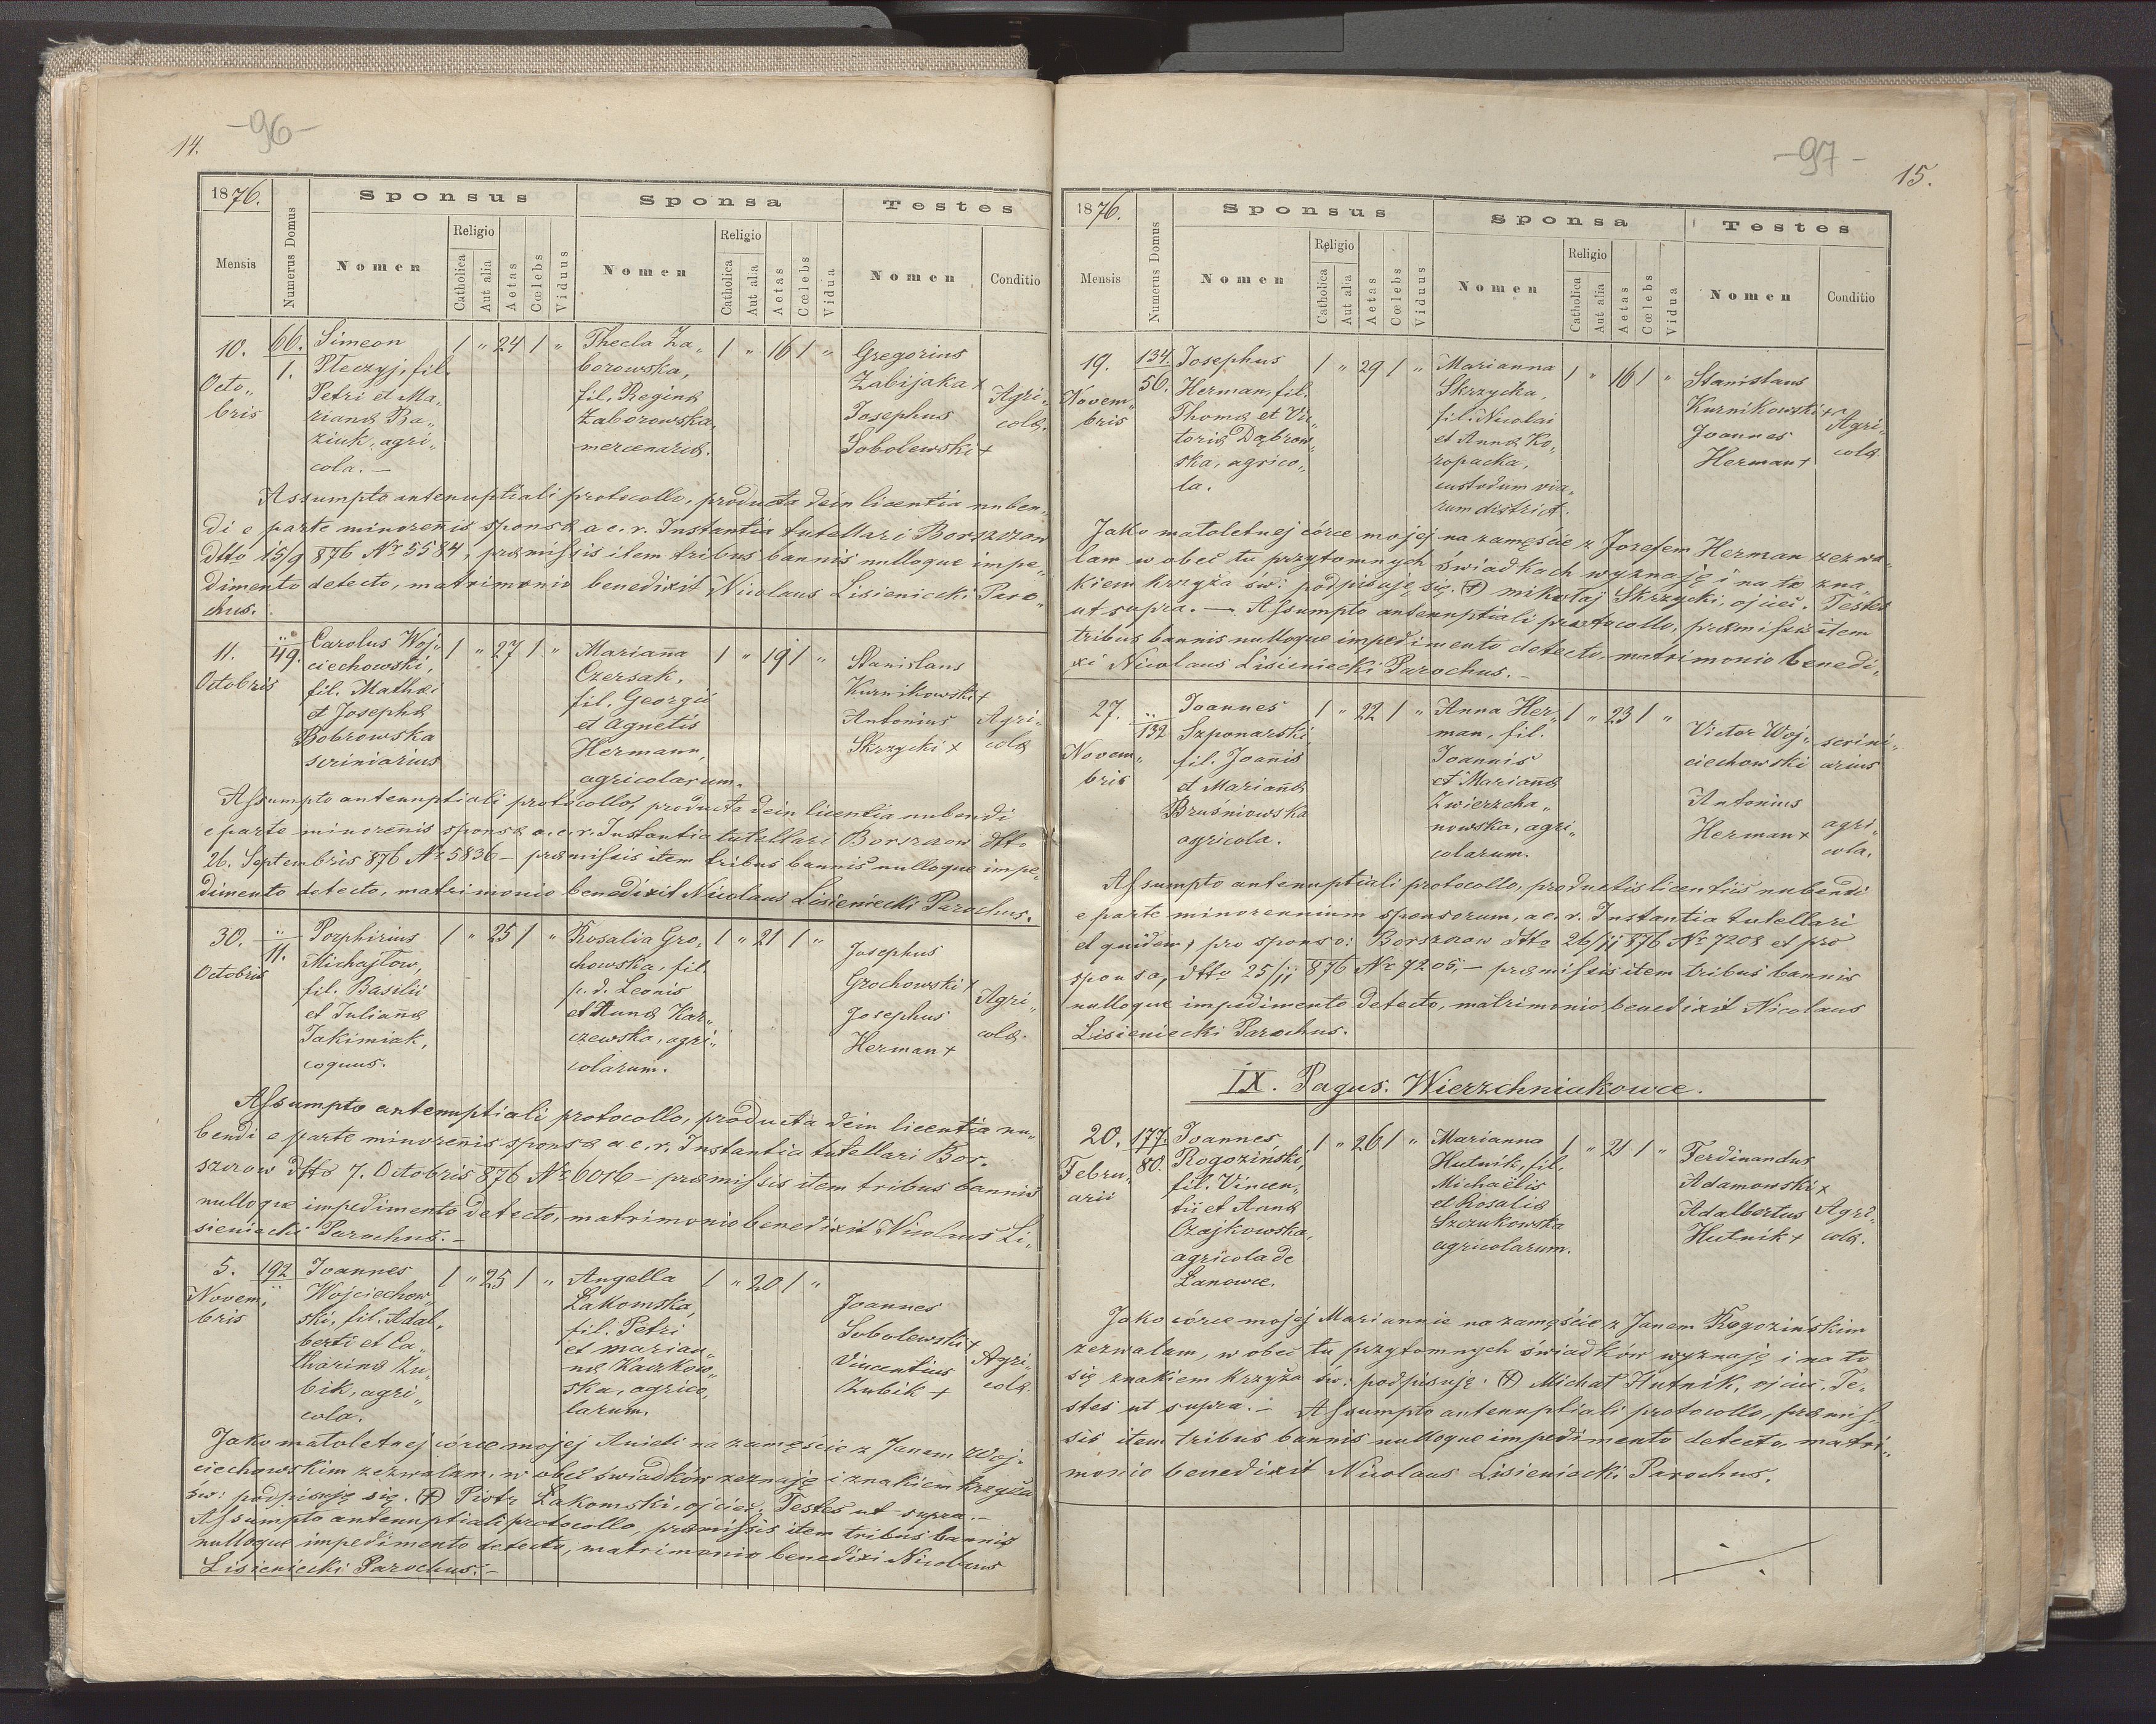 -96-
14.
1876.
Sponsus
Sponsa
Testes
Mensis
Numerus Domus
Nomen
Religio
Catholica
Aut alia
Aetas
Cœlebs
Viduus
Nomen
Religio
Catholica
Aut alia
Aetas
Cœlebs
Vidua
Nomen
Conditio
10.
Octo„
bris
66.
1.
Simeon
Pleczyj, fil.
Petri et Ma„
rianæ Ba„
ziuk, agri„
cola. —
1 „ 24 1 „
Thecla Za„
borowska,
fil. Reginæ
Zaborowska,
mercenariæ.
1 „ 16 1 „
Gregorius
Zabijaka +
Josephus
Sobolewski +
Agri„
colæ.
Assumpto antenuptiali protocollo, producta dein licentia nuben„
di e parte minoreñis sponsæ a c. r. Instantia tutellari Borszczow
dtto 15/9 876 Nr 5584, præmissis item tribus bannis nulloque impe„
dimento detecto, matrimonio benedixit Nicolaus Lisieniecki Paro„
chus.
11.
Octobris
„
49.
Carolus Woj„
ciechowski,
fil. Mathæi
et Josephæ
Bobrowska
scriniarius
1 „ 27 1 „
Mariaña
Czersak,
fil. Georgii
et Agnetis
Hermann,
agricolarum.
1 „ 19 1 „
Stanislaus
Kurnikowski +
Antonius
Skrzycki +
Agri„
colæ
Assumpto antenuptiali protocollo, producta dein licentia nubendi
e parte minoreñis sponsæ a. c. r. Instantia tutellari Borszczow dtto
26. Septembris 876 Nr 5836 — præmissis item tribus bannis nulloque impe„
dimento detecto, matrimonio benedixit Nicolaus Lisieniecki Parochus.
30.
Octobris
„
11.
Porphirius
Michajlow,
fil. Basilii
et Juliañæ
Jakimiak,
coquus.
1 „ 25 1 „
Rosalia Gro„
chowska, fil.
p. d. Leonis
et Annæ Kar„
czewska, agri„
colarum.
1 „ 21 1 „
Josephus
Grochowski +
Josephus
Herman +
Agri„
colæ.
Assumpto antenuptiali protocollo, producta dein licentia nu„
bendi e parte minoreñis sponsæ a c. r. Instantia tutellari Bor„
szczow dtto 7. Octobris 876 Nr 6016 — præmissis item tribus bannis
nulloque impedimento detecto, matrimonio benedixit Nicolaus Li„
sieniecki Parochus. —
5.
Novem„
bris
192
„
Joannes
Wojciechow„
ski, fil. Adal„
berti et Ca„
tharinæ Zu„
bik, agri„
cola.
1 „ 25 1 „
Angella
Łakomska,
fil. Petri
et marian„
næ Kaczkow„
ska, agrico„
larum.
1 „ 20 1 „
Joannes
Sobolewski +
Vincentius
Zubik +
Agri„
colæ
Jako małoletnej córce mojej Anieli na zamęście z Janem Woj„
ciechowskim zezwalam, w obec świadków zeznaję i znakiem krzyża
św: podpisuję się. (+) Piotr Łakomski, ojciec. Testes ut supra. —
Assumpto antenuptiali protocollo, præmissis item tribus bannis
nulloque impedimento detecto, matrimonio benedixi Nicolaus
Lisieniecki Parochus. —
-97-
15.
1876.
Sponsus
Sponsa
Testes
Mensis
Numerus Domus
Nomen
Religio
Catholica
Aut alia
Aetas
Cœlebs
Viduus
Nomen
Religio
Catholica
Aut alia
Aetas
Cœlebs
Vidua
Nomen
Conditio
19.
Novem„
bris
134.
56.
Josephus
Herman, fil.
Thomæ et Vic„
toriæ Dąbrow„
ska, agrico„
la.
1 „ 29 1 „
Marianna
Skrzycka,
fil. Nicolai
et Annæ Ko„
ropacka,
custodum via„
rum district.
1 „ 16 1 „
Stanislaus
Kurnikowski +
Joannes
Herman +
Agri„
colæ
Jako małoletnej córce mojej na zamęście z Jozefem Herman zezwa„
lam w obec tu przytomnych świadkach wyznaję i na to zna„
kiem krzyża św: podpisuję się. (+) mikołaj Skrzycki, ojciec. Testes
ut supra. — Assumpto antenuptiali protocollo, præmissis item
tribus bannis nulloque impedimento detecto, matrimonio benedi„
xi Nicolaus Lisieniecki Parochus. —
27.
Novem„
bris
„
132
Joannes
Szponarski,
fil. Joañis
et Mariañæ
Bruśniowska
agricola.
1 „ 22 1 „
Anna Her„
man, fil.
Joannis
et Mariañæ
Zwierzcha„
nowska, agri„
colarum.
1 „ 23 1 „
Victor Woj„
ciechowski
scrini„
arius
Antonius
Herman +
agri„
cola.
Assumpto antenuptiali protocollo, productis licentiis nubendi
e parte minorennium sponsorum, a c. r. Instantia tutellari
et quidem, pro sponso: Borszczow dtto 26/11 876 Nr 7208 et pro
sponsa, dtto 25/11 876 Nr 7205, — præmissis item tribus bannis
nulloque impedimento detecto, matrimonio benedixit Nicolaus
Lisieniecki Parochus.
IX. Pagus. Wierzchniakowce.
20.
Febru„
arii
177.
80.
Joannes
Rogoziński,
fil. Vincen„
tii et Annæ
Czajkowska,
agricola de
Łanowce.
1 „ 26 1 „
Marianna
Hutnik, fil.
Michaëlis
et Rosaliæ
Szczukowska
agricolarum.
1 „ 21 1 „
Ferdinandus
Adamowski +
Adalbertus
Hutnik +
Agri„
colæ.
Jako córce mojej Mariannie na zamęście z Janem Rogozińskim
zezwalam, w obec tu przytomnych świadków wyznaję i na to
się znakiem krzyża św: podpisuję. (+) Michał Hutnik, ojciec. Te„
stes ut supra. — Assumpto antenuptiali protocollo, præmis„
sis item tribus bannis nulloque impedimento detecto, matri„
monio benedixit Nicolaus Lisieniecki Parochus.